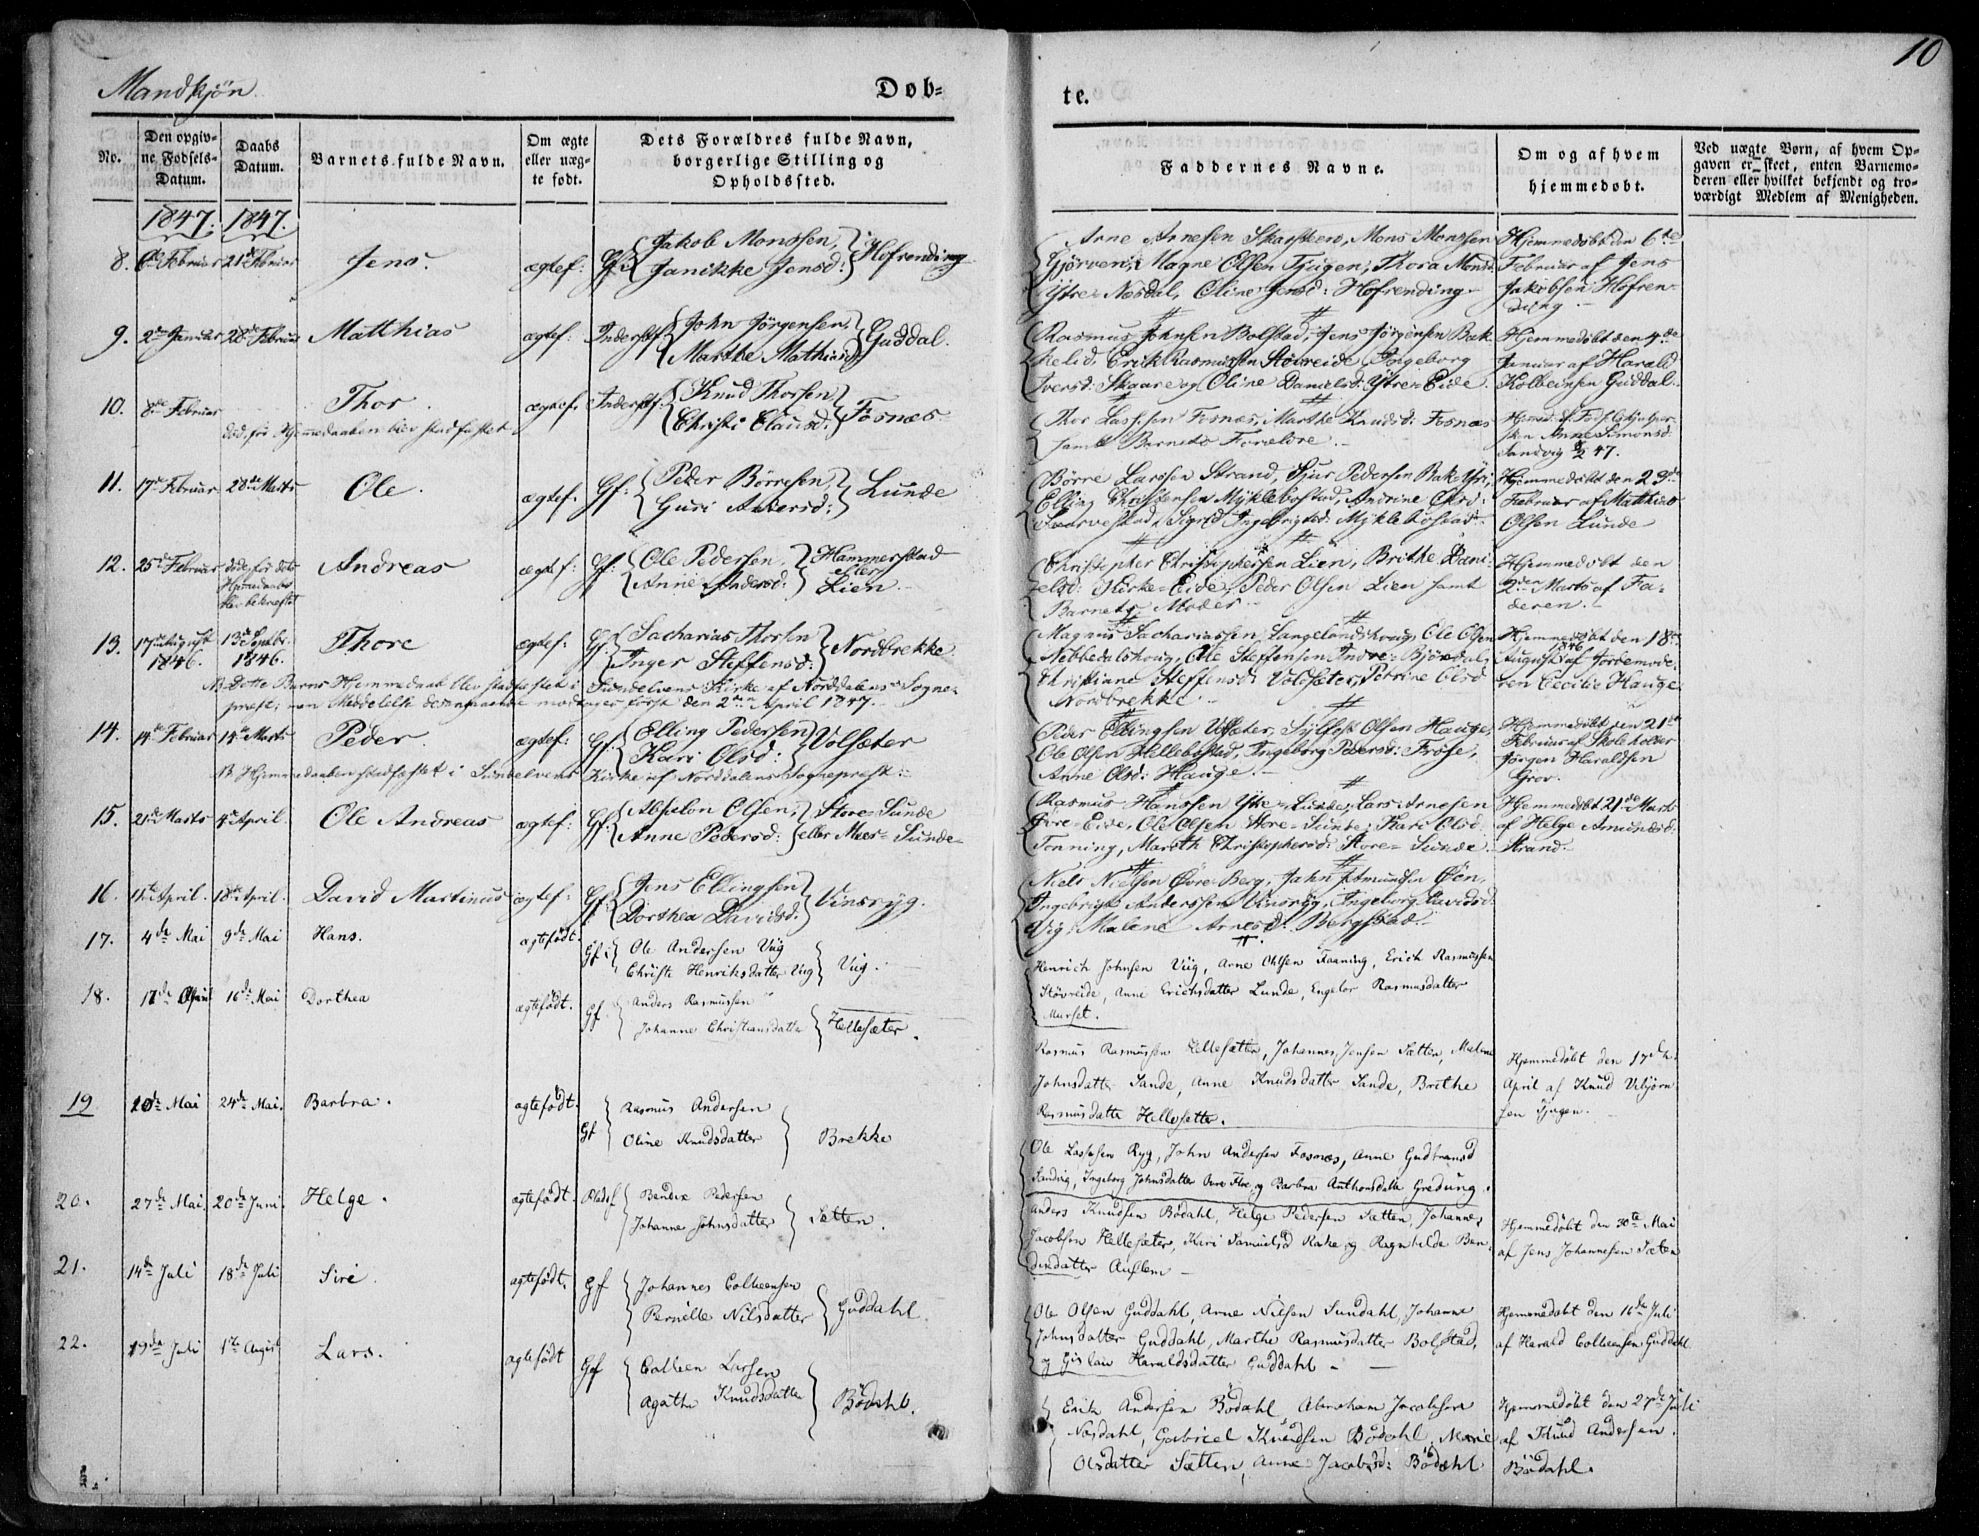 Mandkjøn.
Døb-
No.
Den opgivne Fødsels-Datum.
Daabs Datum.
Barnets fulde Navn.
Om ægte eller uægte født.
Dets Forældres fulde Navn, borgerlige Stilling og Opholdssted.
1847. 1847.
8. 6te Februar 21de Februar Jens. ægtef: Gf: Jakob Monssen, Janikke Jensd: Hofrending
9. 2den Januar 28de Februar Matthias ægtef: Inderst John Jørgensen, Marthe Mathiasd: Guddal.
10. 8de Februar Thor. ægtef. Inderst Knud Thorsen Christi Clausd: Fosnæs
død, før Hjemmedaaben blev stadfæstet.
11. 17de Februar 28de Marts Ole. ægtef. Gf: Peder Børresen, Guri Andersd: Lunde
12. 25de Februar døde før dets Hjemmedaab blev bekræftet Andreas ægtef: Gf: Ole Pedersen, Anne Andersd: Hammerstad eller Lien
13. 17de August 1846. 13de Septbr. 1846. Thore ægtef: Gf: Sacharias Thorsen Inger Steffensd: Nordbrekke
NB Dette Barns Hjemmedaab blev stadfæstet i Sundelvens Kirke af Norddalens Sogne-
præst; men Meddelelse desangaaende modtoges først den 2den April 1847.
14. 14de Februar 14de Marts Peder. ægtef: Gf: Elling Pedersen Kari Olsd: Volsæter
NB Hjemmedaaben stadfæstet i Sundelvens Kirke af Norddalens Sognepræst.
15. 21de Marts 4de April. Ole Andreas ægtef: Gf: Absalon Olsen, Anne Pedersd: Store-Sunde eller Meer-Sunde
16. 11te April. 18de April. David Martinus ægtef: Gf: Jens Ellingsen Dorthea Davidsd: Vinsryg.
17. 4de Mai 9de Mai Hans. ægtefødt. Gf: Ole Andersen Viig Christi Henriksdatter Viig Viig.
18. 17de April 16de Mai Dorthea ægtefødt. Gf. Anders Rasmussen Johanne Christiansdatter Hellesæter.
19 10de Mai 24de Mai. Barbra. ægtefødt. Gf Rasmus Andersen Oline Knudsdatter Brekke
20. 27de Mai 20de Juni. Helge. ægtefødt. Pladsf Bendix Pedersen Johanne Johnsdatter Sætten.
21. 14de Juli 18de Juli Siri ægtefødt. Gf Johannes Colbeensen Pernille Nilsdatter Guddahl.
22. 19de Juli 1ste August Lars. ægtefødt Gf Colbeen Larsen Agathe Knudsdatter Bödahl.
10
te.
Faddernes Navne.
Om og af hvem hjemmedøbt.
Ved uægte Børn, af hvem Opgaven er skeet, enten Barnemoderen eller hvilket bekjendt og troværdigt Medlem af Menigheden.
Arne Arnesen Skarsteen, Mons Monssen Hjemmedøbt den 6te
Gjørven, Magne Olsen Tjugen, Thora Monsd. Februar af Jens
Ytre-Næsdal, Oline Jensd: Hofrending. Jakobsen Hofrending.
Rasmus Johnsen Bolstad, Jens Jørgensen Bak- Hjemmedøbt den 4de
kelid, Erik Rasmussen Støvreide, Ingeborg Januar af Harald
Iversd: Skaare og Oline Danielsd: Ytre-Eide. Kolbeinsen Guddal.
Thor Lassesen Fosnæs, Marthe Knudsd: Fosnæs
samt Barnets Forældre. Anne Simonsd. Sandvig 8/2 47.
Børre Larssen Strand, Sjur Pedersen Bakedyri, Hjemmedøbt den 23de
Elling Christensen Myklebostad, Andrine Olsd: Februar af Matthias
Sigrid Ingebrigtsd: Myklebostad. Olsen Lunde
Christopher Christophersen Lien, Brithe Dani- Hjemmedøbt den
elsd: Kirke-Eide, Peder Olsen Lien samt 2den Marts af Fa-
Barnets Moder. deren.
Magnus Sachariassen Langelandshoug, Ole Olsen Hjemmedøbt den 18de
Nebbedalshoug, Ole Steffensen Indre-Bjørdal, August 1846 af Jordemode-
Christiane Steffensd: Volsæter, Perrine Olsd ren Cecilie Hauge.
Nordbrekke
Peder Ellingsen Volsæter, Sylfest Olsen Hauge, Hjemmedøbt den 21de
Ole Olsen Hellebostad, Ingeborg Pedersd: Frøse, Februar af Skoleholder
Anne Olsd: Hauge. Jørgen Haraldsen Grov.
Rasmus Hanssen Ytre-Lunde, Lars Arnesen Hjemmedøbt 21de Marts
Øvre-Eide, Ole Olsen Store-Sunde, Kari Olsd af Helge Amundsd:
Tonning, Marith Christophersd: Store-Sunde. Strand.
Niels Nielsen Øvre-Berg, John Amundsen Øen,
Ingebrigt Anderssen Vinsryg, Ingeborg Davidsd:
Vig, Malene Arnesd: Bergstad.
Henrich Johnsen Viig, Arne Olsen Faaning, Erich Rasmussen
Støvreide, Anne Erichsdatter Lunde, Engelor Rasmusdatter
Murset.
Rasmus Rasmussen Hellesætter, Johannes Jensen Sætten, Malene Hjemmedøbt den 17de
Johnsdatter Sande, Anne Knudsdatter Sande, Brithe April af Knud Ubjørn-
Rasmusdatter Hellesetter. sen Tjugen.
Ole Lassesen Ryg, John Andersen Fosnæs, Anne Gudbransd
Sandvig, Ingeborg Johnsdatter Øvre Floe, og Barbra Anthonsdatter Gredung.
Anders Knudsen Bödahl, Helge Pedersen Sætten, Johannes Hjemmedøbt den 30te Mai
Jacobsen Hellesæter, Kari Samuelsd Rake og Ragnhilde Ben- af Jens Johannesen Sæten
dixdatter Auflem
Ole Olsen Guddahl, Arne Nilsen Sundahl, Johanne Hjemmedøbt den 16de Juli
Johnsdatter Guddahl, Marthe Rasmusdatter Bolstad, af Harald Colbeensen Guddahl
og Gislau Haraldsdatter Guddahl
Erik Andersen Bödahl, Abraham Jacobsen Hjemmedøbt den 27de Juli
Næsdahl, Gabriel Knudsen Bödahl, Marie af Knud Andersen
Olsdatter Sætten, Anne Jacobsd: Bödahl Bödahl.